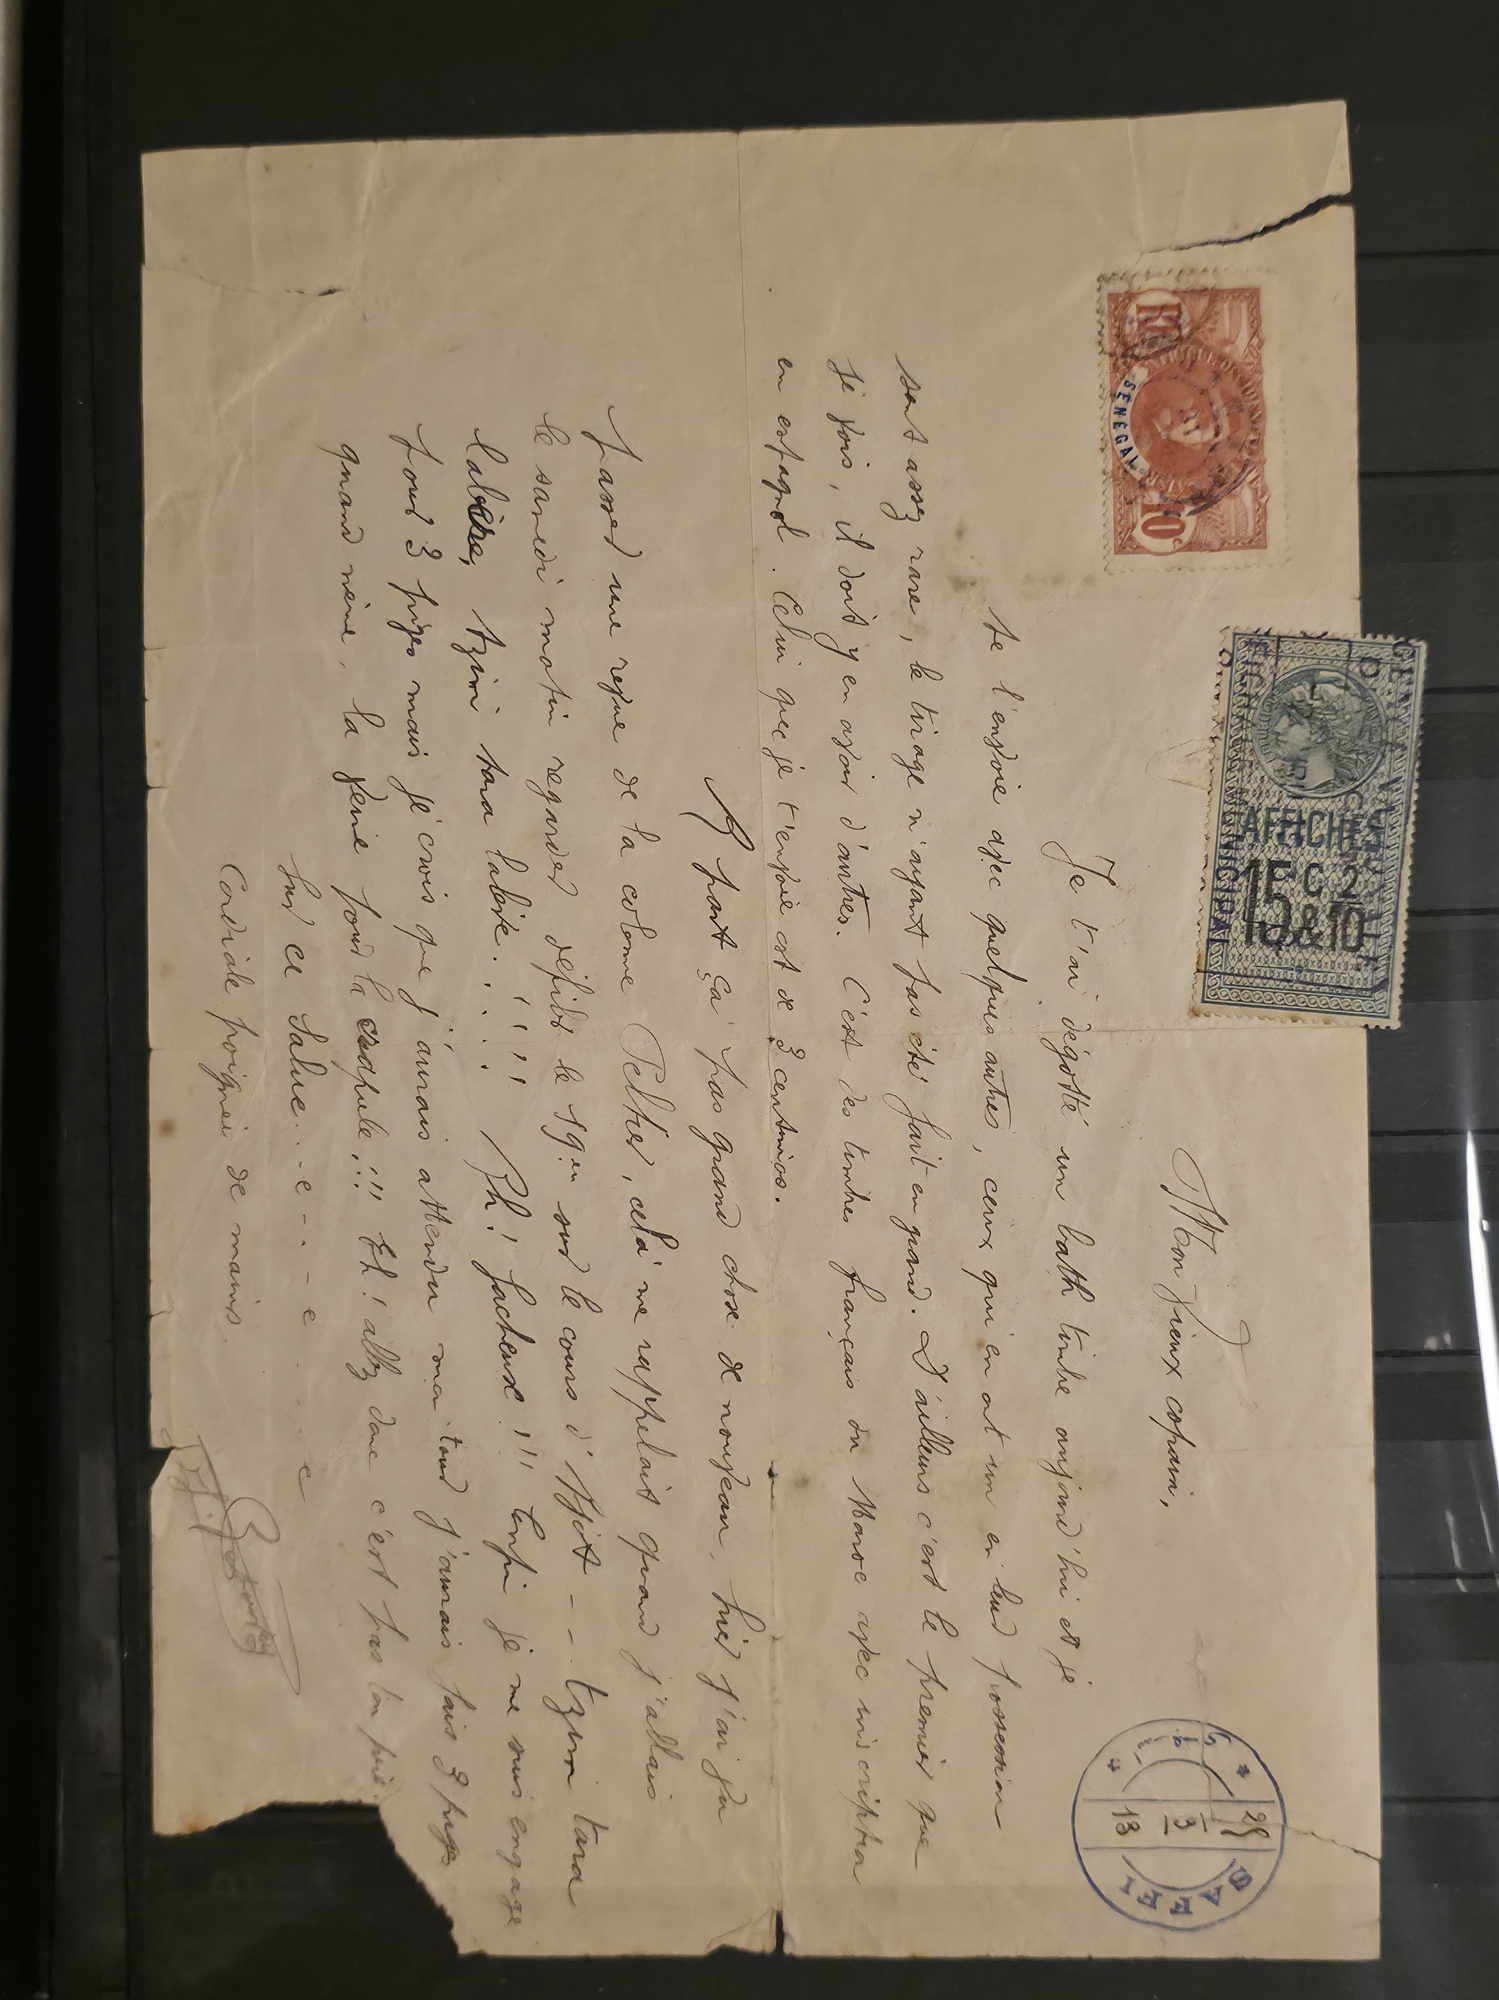 SAFFI
28
3
13
Mon vieux copain,
Je t'ai dégotté un bath timbre aujourd'hui et je
te l'envoie avec quelques autres, ceux qui en ont un en leur possession
sont assez rare, le tirage n'ayant pas été fait en grand. D'ailleurs c'est le premier que
je vois, il doit y en avoir d'autres. C'est des timbres français du Maroc avec inscription
en espagnol. Celui que je t'envoie est de 3 centimos.
A part ça pas grand chose de nouveau, hier j'ai vu
passer une revue de la colonne Peltier, cela me rappelait quand j'allais
le samedi matin regarder défiler le 19em sur le cours d'Ajot - - . tzim tara
labire, tzim tara labire. ! ! ! ! Ah! facheux!!! Enfin je me suis engagé
pour 3 piges mais je crois que j'aurais attendu mon tour j'aurais fais 3 piges
quand même, la veine pour la crapule!!! Eh! allez donc c'est pas ton père.
Sur ce Salue...e---e....e
Cordiale poignée de mains.
SÉNÉGAL
10 c
AFFICHES
15 C 2
15 & 10
MUNICIPAL